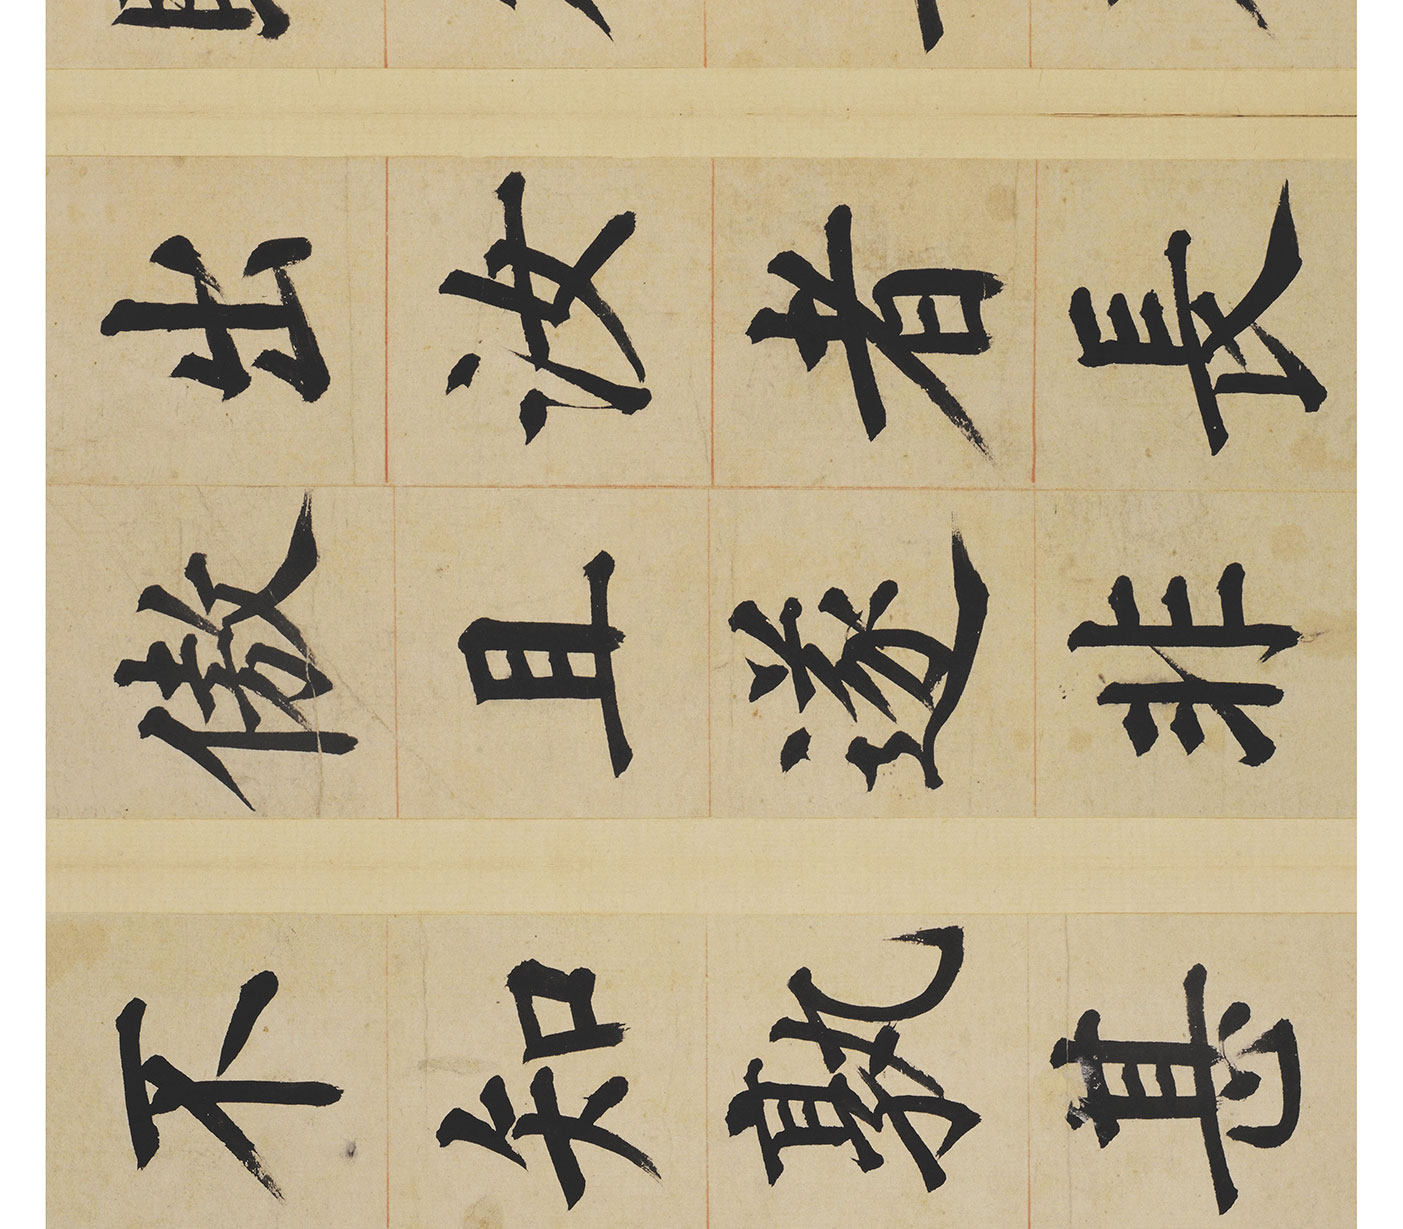 出汝者長
傲且遂非
不知孰甚